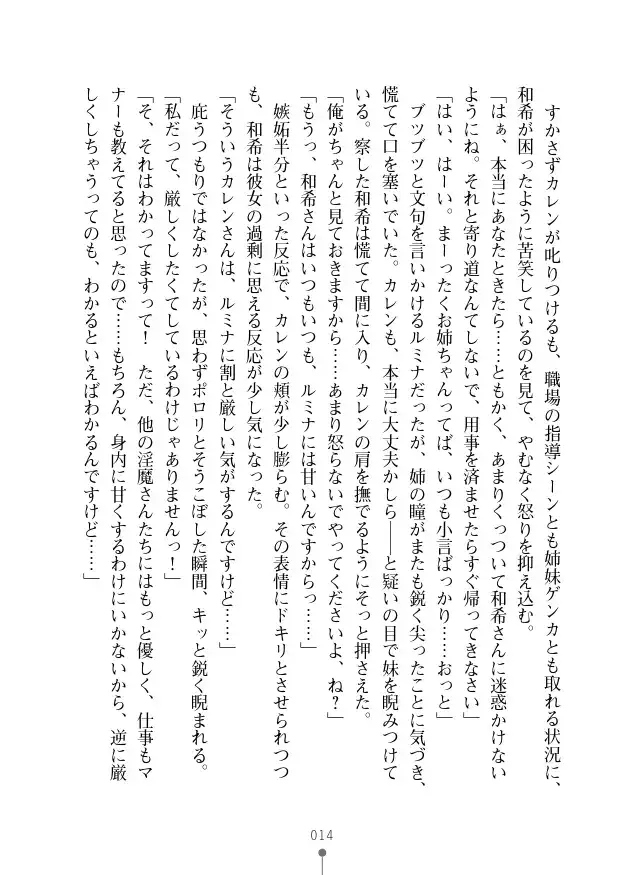 すかさずカレンが叱りつけるも、職場の指導シーンとも姉妹ゲンカとも取れる状況に、
和希が困ったように苦笑しているのを見て、やむなく怒りを抑え込む。
「はぁ、本当にあなたときたら……ともかく、あまりくっついて和希さんに迷惑かけない
ようにね。それと寄り道なんてしないで、用事を済ませたらすぐ帰ってきなさい」
「はい、はーい。まーったくお姉ちゃんってば、いつも小言ばっかり……おっと」
ブツブツと文句を言いかけるルミナだったが、姉の瞳がまたも鋭く尖ったことに気づき、
慌てて口を塞いでいた。カレンも、本当に大丈夫かしら――と疑いの目で妹を睨みつけて
いる。察した和希は慌てて間に入り、カレンの肩を撫でるようにそっと押さえた。
「俺がちゃんと見ておきますから……あまり怒らないでやってくださいよ、ね？」
「もうっ、和希さんはいつもいつも、ルミナには甘いんですからっ……」
嫉妬半分といった反応で、カレンの頬が少し膨らむ。その表情にドキリとさせられつつ
も、和希は彼女の過剰に思える反応が少し気になった。
「そういうカレンさんは、ルミナに割と厳しい気がするんですけど……」
庇うつもりではなかったが、思わずポロリとそうこぼした瞬間、キッと鋭く睨まれる。
「私だって、厳しくしたくてしているわけじゃありませんっ！」
「そ、それはわかってますって！　ただ、他の淫魔さんたちにはもっと優しく、仕事もマ
ナーも教えてると思ったので……もちろん、身内に甘くするわけにいかないから、逆に厳
しくしちゃうってのも、わかるといえばわかるんですけど……」
014